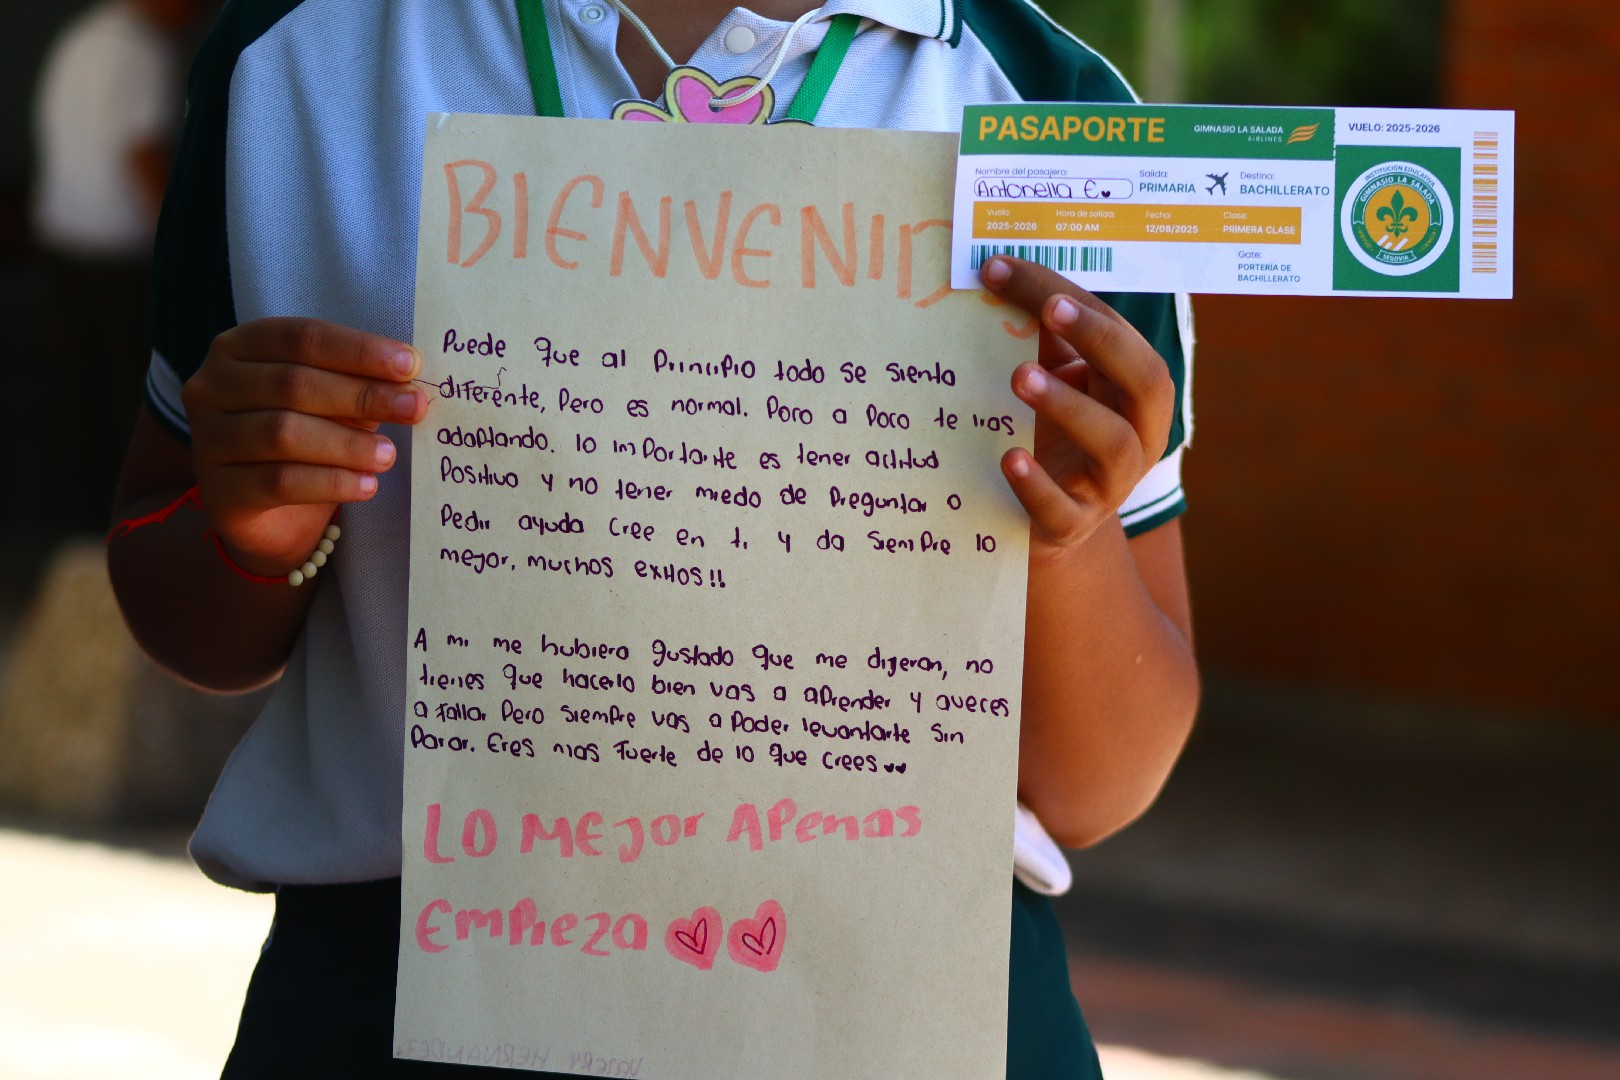 BIENVENID
Puede que al Principio todo se sienta
diferente, Pero es normal. Poco a Poco te iras
adaptando. lo importante es tener actitud
Positiva y no tener miedo de Preguntar o
Pedir ayuda Cree en ti y da siempre lo
mejor, muchos exitos!!
A mi me hubiera gustado que me dijeran, no
tienes que hacerlo bien vas a aprender y aveces
a fallar Pero siempre vas a Poder levantarte sin
Parar. Eres mas fuerte de lo que crees
LO MEJOR APENAS
EMPIEZA
PASAPORTE
GIMNASIO LA SALADA
AIRLINES
VUELO: 2025-2026
Nombre del pasajero:
Antonella E.
Salida:
PRIMARIA
Destino:
BACHILLERATO
Vuelo:
2025-2026
Hora de salida:
07:00 AM
Fecha:
12/08/2025
Clase:
PRIMERA CLASE
Gate:
PORTERÍA DE
BACHILLERATO
INSTITUCIÓN EDUCATIVA
GIMNASIO LA SALADA
SEGOVIA